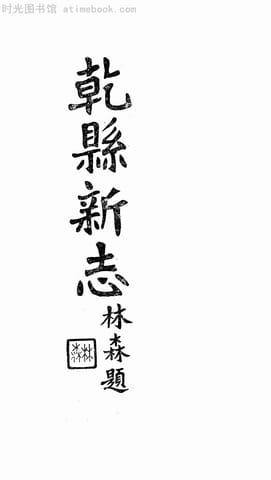 时光图书馆 atimebook.com
乾縣新志
林森題
林森